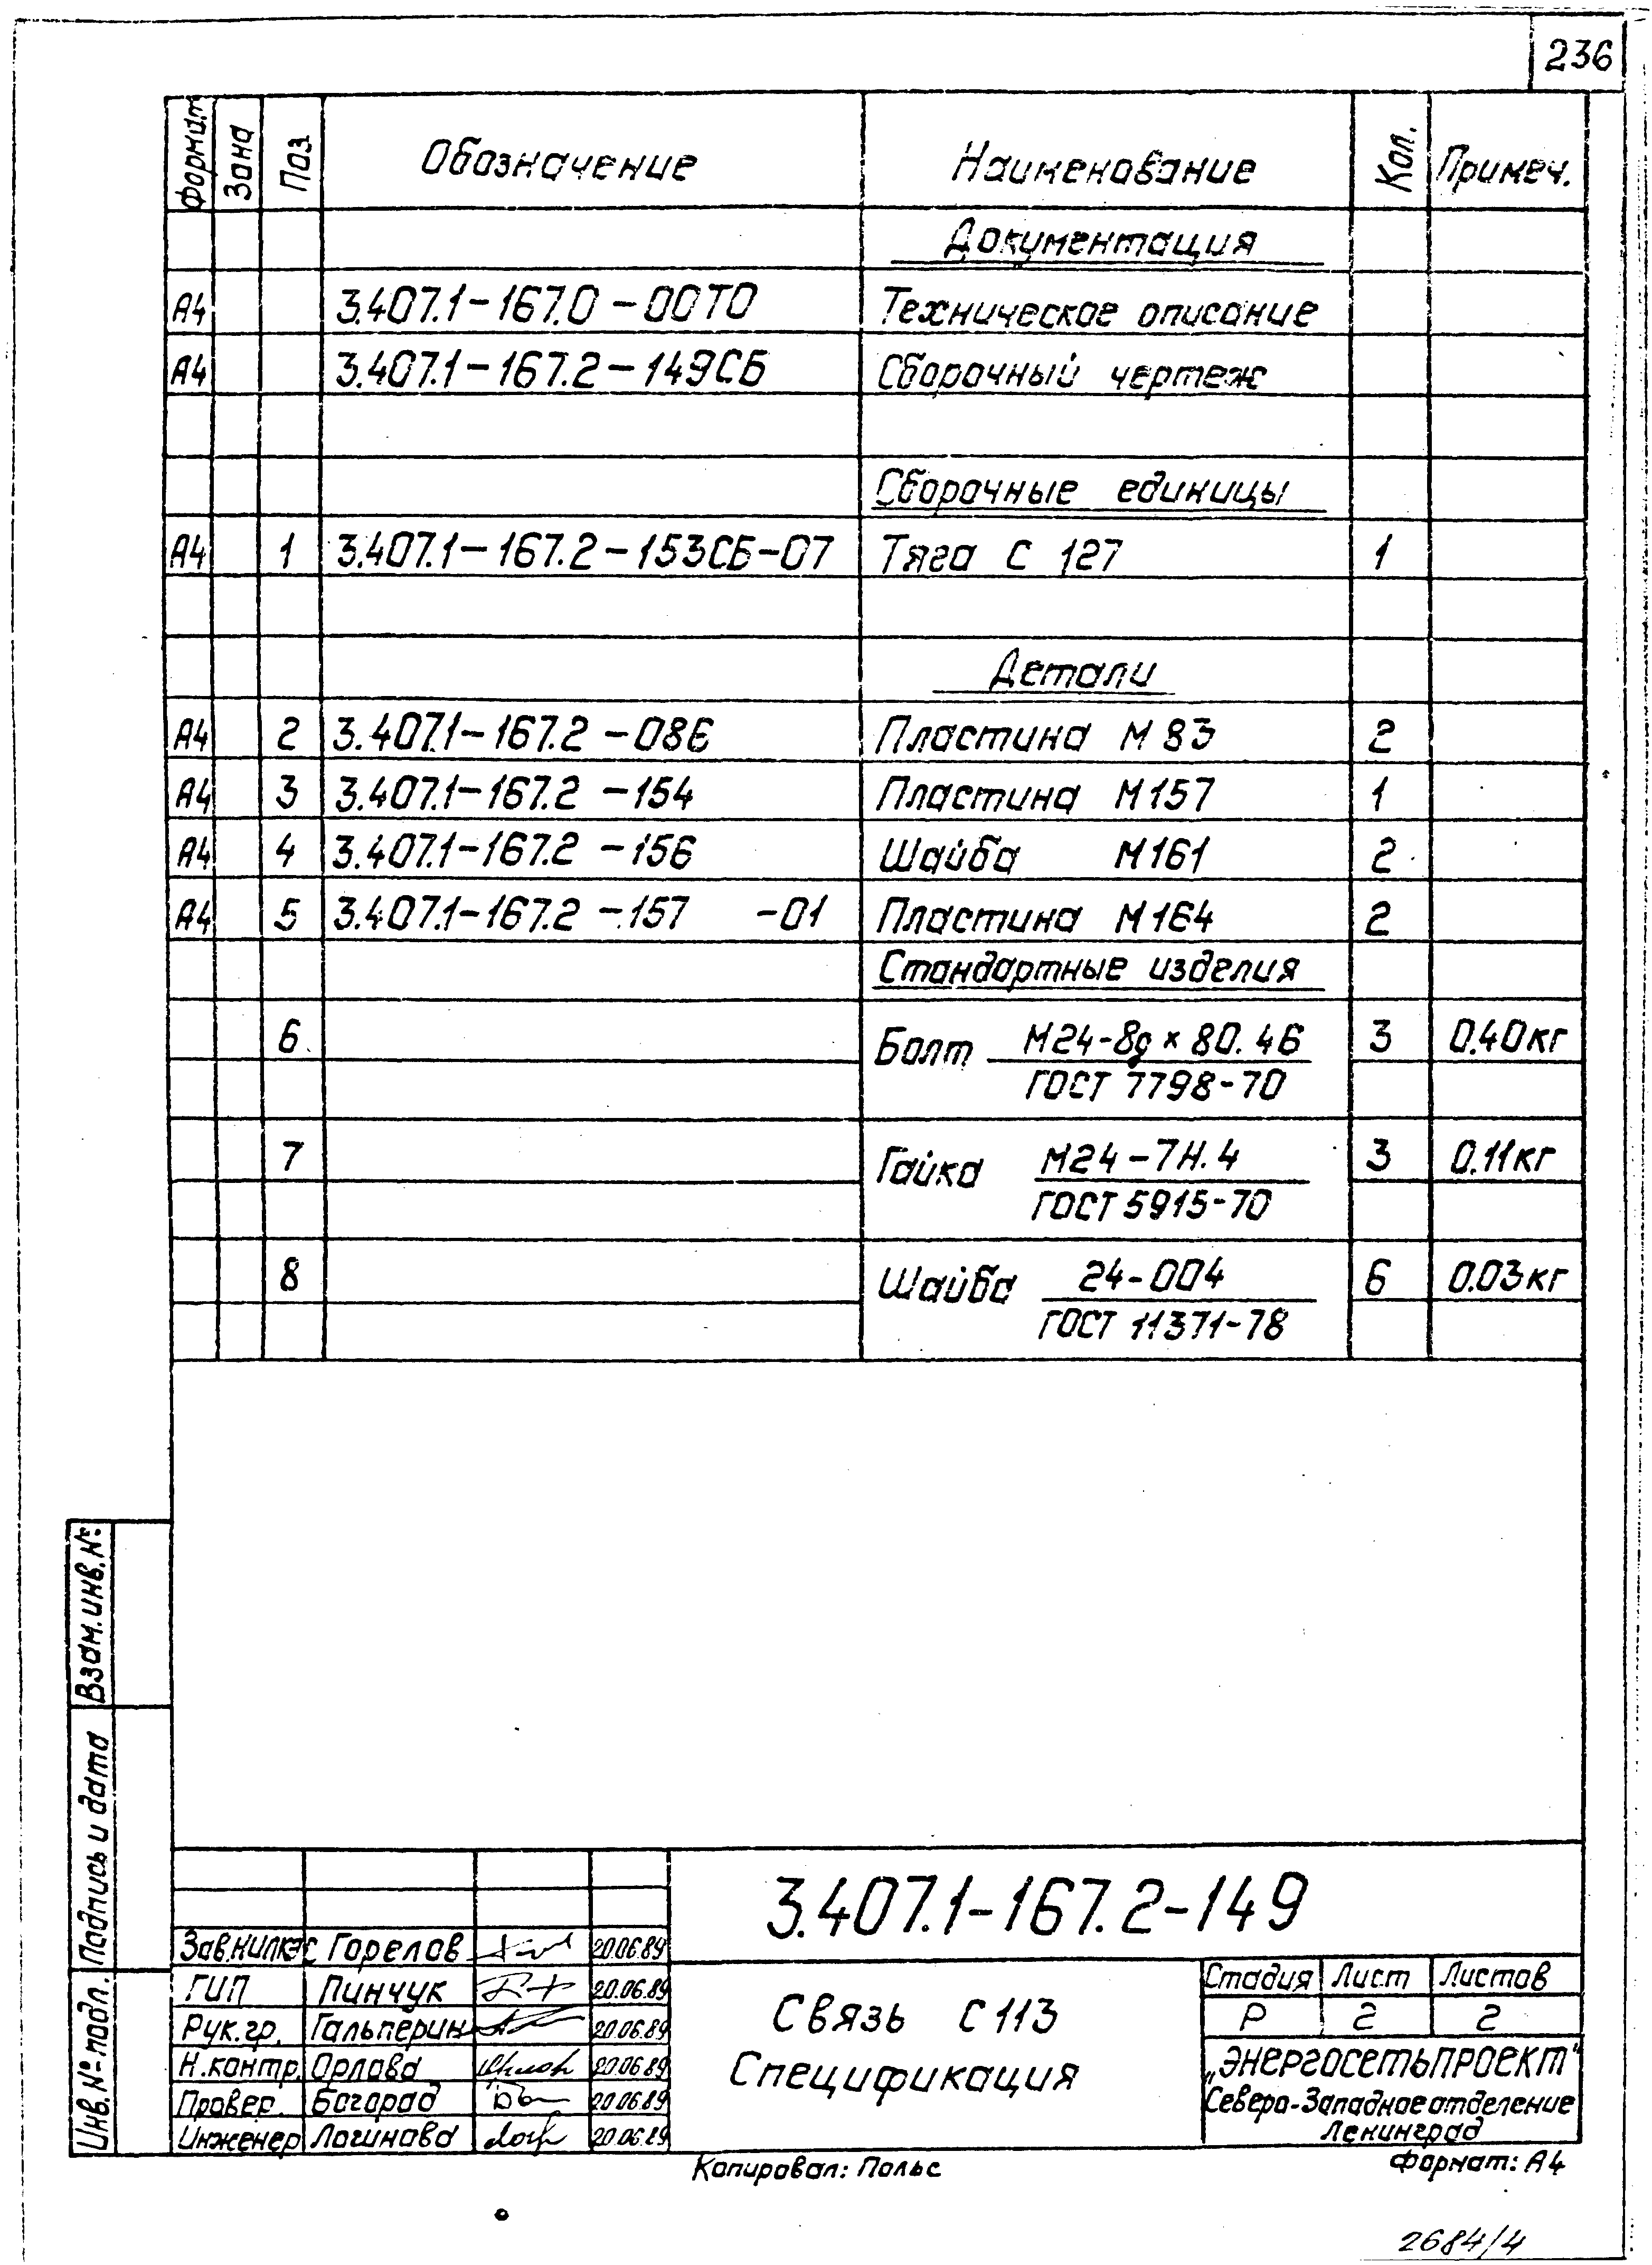 236
Формат Зона Поз. Обозначение Наименование Кол. Примеч.
Документация
А4 3.407.1-167.0-00ТО Техническое описание
А4 3.407.1-167.2-149СБ Сборочный чертеж
Сборочные единицы
А4 1 3.407.1-167.2-153СБ-07 Тяга С 127 1
Детали
А4 2 3.407.1-167.2-086 Пластина М 83 2
А4 3 3.407.1-167.2-154 Пластина М 157 1
А4 4 3.407.1-167.2-156 Шайба М161 2
А4 5 3.407.1-167.2-157 -01 Пластина М 164 2
Стандартные изделия
6 Болт М24-8g×80.46 3 0.40кг
ГОСТ 7798-70
7 Гайка М24-7Н.4 3 0.11кг
ГОСТ 5915-70
8 Шайба 24-004 6 0.03кг
ГОСТ 11371-78
Взам.инв.№
Подпись и дата
Инв.№ подл.
3.407.1-167.2-149
Зав.НИЛКЭС Горелов 20.06.89
ГИП Пинчук 20.06.89
Рук.гр. Гальперин 20.06.89
Н.контр. Орлова 20.06.89
Провер. Богорад 20.06.89
Инженер Логинова 20.06.89
Связь С 113
Спецификация
Стадия Лист Листов
Р 2 2
„ЭНЕРГОСЕТЬПРОЕКТ"
Северо-Западное отделение
Ленинград
Копировал: Польс
Формат: А4
2684/4